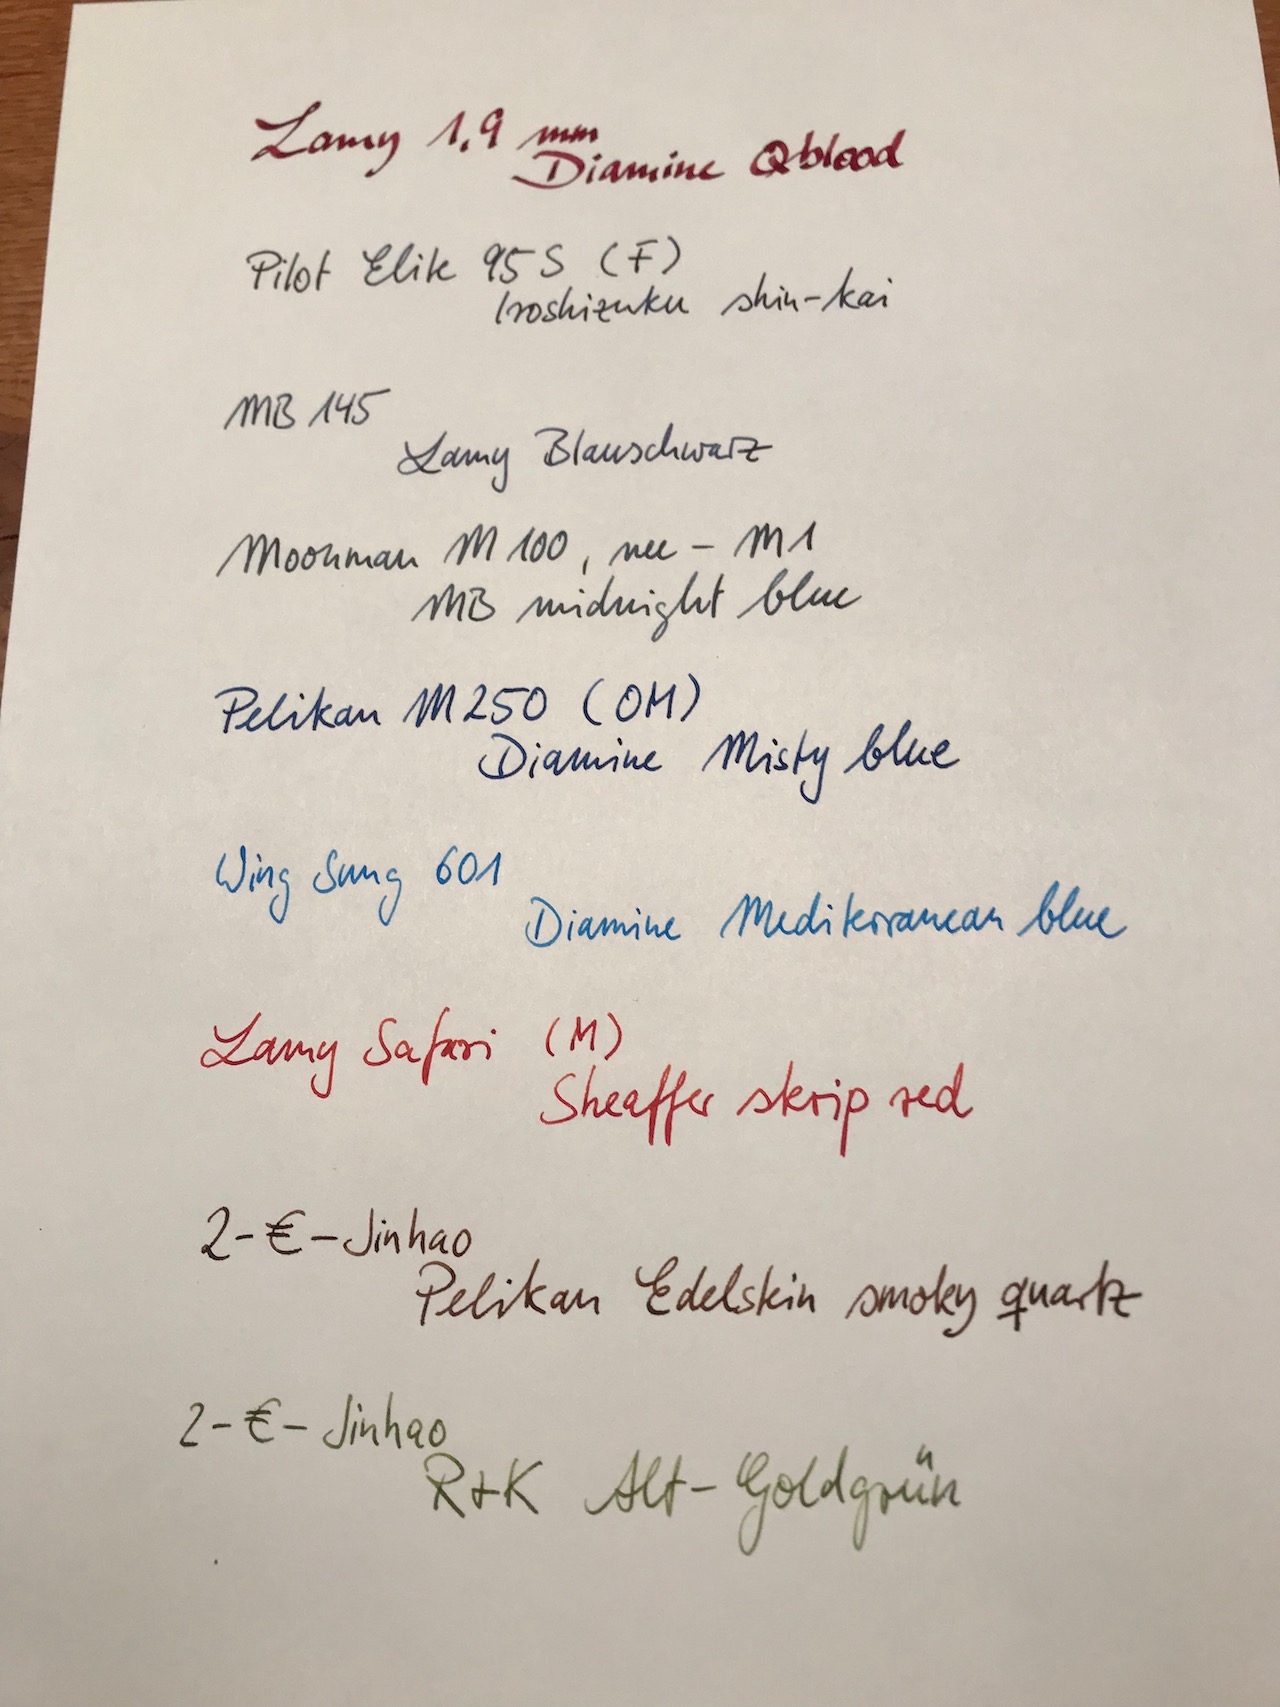 Lamy 1,9 mm
Diamine Oxblood
Pilot Elite 95 S (F)
Iroshizuku shin-kai
MB 145
Lamy Blauschwarz
Moonman M 100, née - M1
MB midnight blue
Pelikan M 250 (OM)
Diamine Misty blue
Wing Sung 601
Diamine Mediterranean blue
Lamy Safari (M)
Sheaffer skrip red
2-€-Jinhao
Pelikan Edelstein smoky quartz
2-€-Jinhao
R+K Alt-Goldgrün